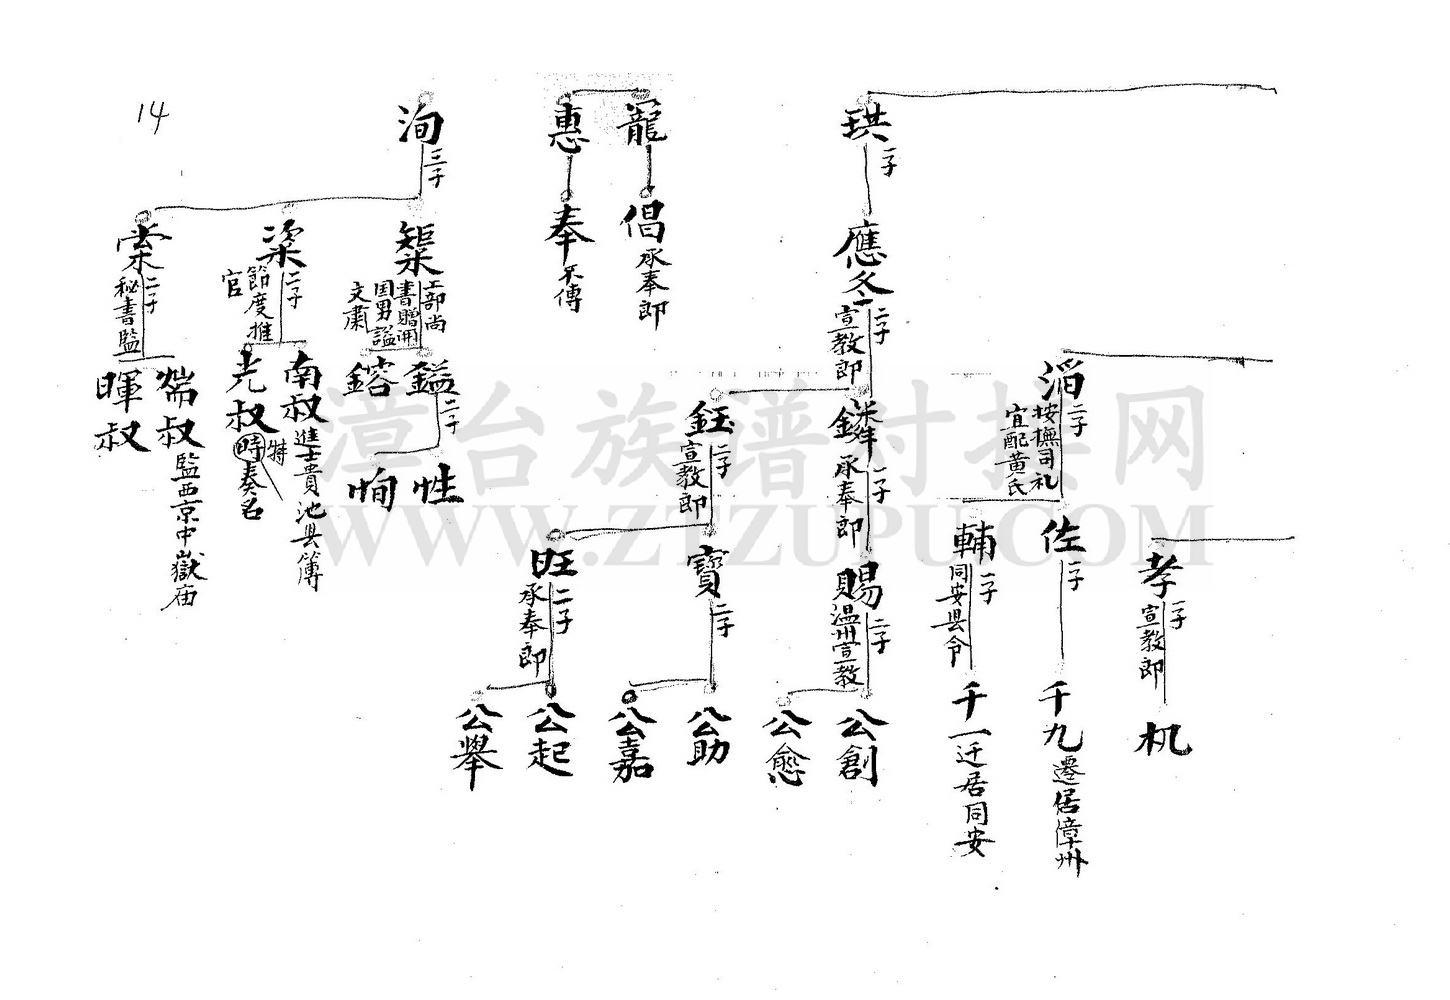 14
珙
一子
應冬
二子
宣教郎
鏻
一子
承奉郎
鈺
二子
宣教郎
賜
二子
温州宣教
寶
二子
旺
二子
承奉郎
公創
公愈
公助
公嘉
公起
公舉
滔
二子
按撫司礼
宜配黃氏
佐
一子
輔
一子
同安县令
千九
遷居漳州
千一
迁居同安
孝
一子
宣教郎
机
寵
惠
倡
承奉郎
奉
不傳
洵
三子
榘
工部尚
書贈開
国男謚
文肅
鎰
二子
鎔
性
恂
梁
二子
節度推
官
南叔
進士貴池县簿
光叔
時奏名
特
棠
二子
秘書監
煓叔
監西京中嶽庙
暉叔
漳台族谱对接网
WWW.ZTZUPU.COM